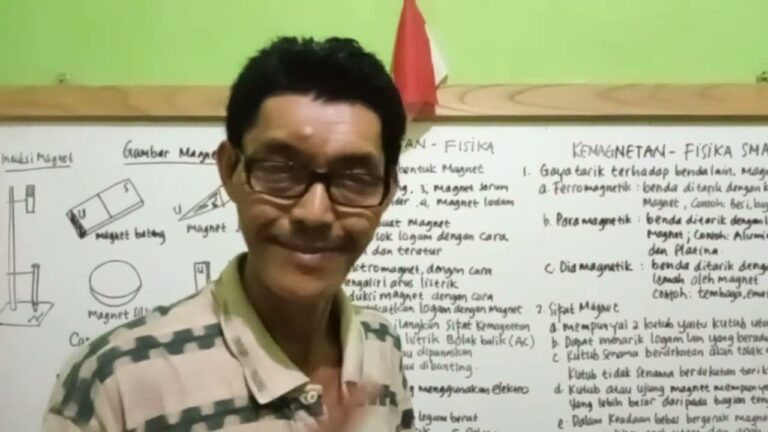 Induksi Magnet
Gambar Magne
U
S
magnet batang
U
magnet
Magnet
U
TAN - FISIKA
bentuk Magnet
3, Magnet Jarum
4. Magnet ladam
uat Magnet
sok logam dengan cara
dan teratur
ktromagnet, dengan cara
ngaliri arus listrik
duksi magnet dengan cara
katkan logam dengan magnet
ilangkan Sifat Kemagnetan
listrik Bolak balik (AC)
au dipanaskan
au dibanting.
menggunakan elektro
logam berat
KEMAGNETAN - FISIKA SMA
1. Gaya tarik terhadap benda lain, Mag
a. Ferromagnetik : benda ditarik dengan k
Magnet, Contoh: Besi, baj
b. Paramagnetik : benda ditarik dengan l
Magnet; Contoh: Alumi
dan Platina
c. Diamagnetik : benda ditarik deng
lemah oleh magnet
Contoh: tembaga, emas
2. Sifat Magnet
a. mempunyai 2 kutub yaitu kutub uta
b. Dapat menarik logam lain yang berada
c. Kutub Senama berdekatan akan tolak
Kutub tidak senama berdekatan tarik
d. Kutub atau ujung magnet mempunya
yang lebih besar daripada bagian teng
e. Dalam Keadaan bebas bergerak magnet